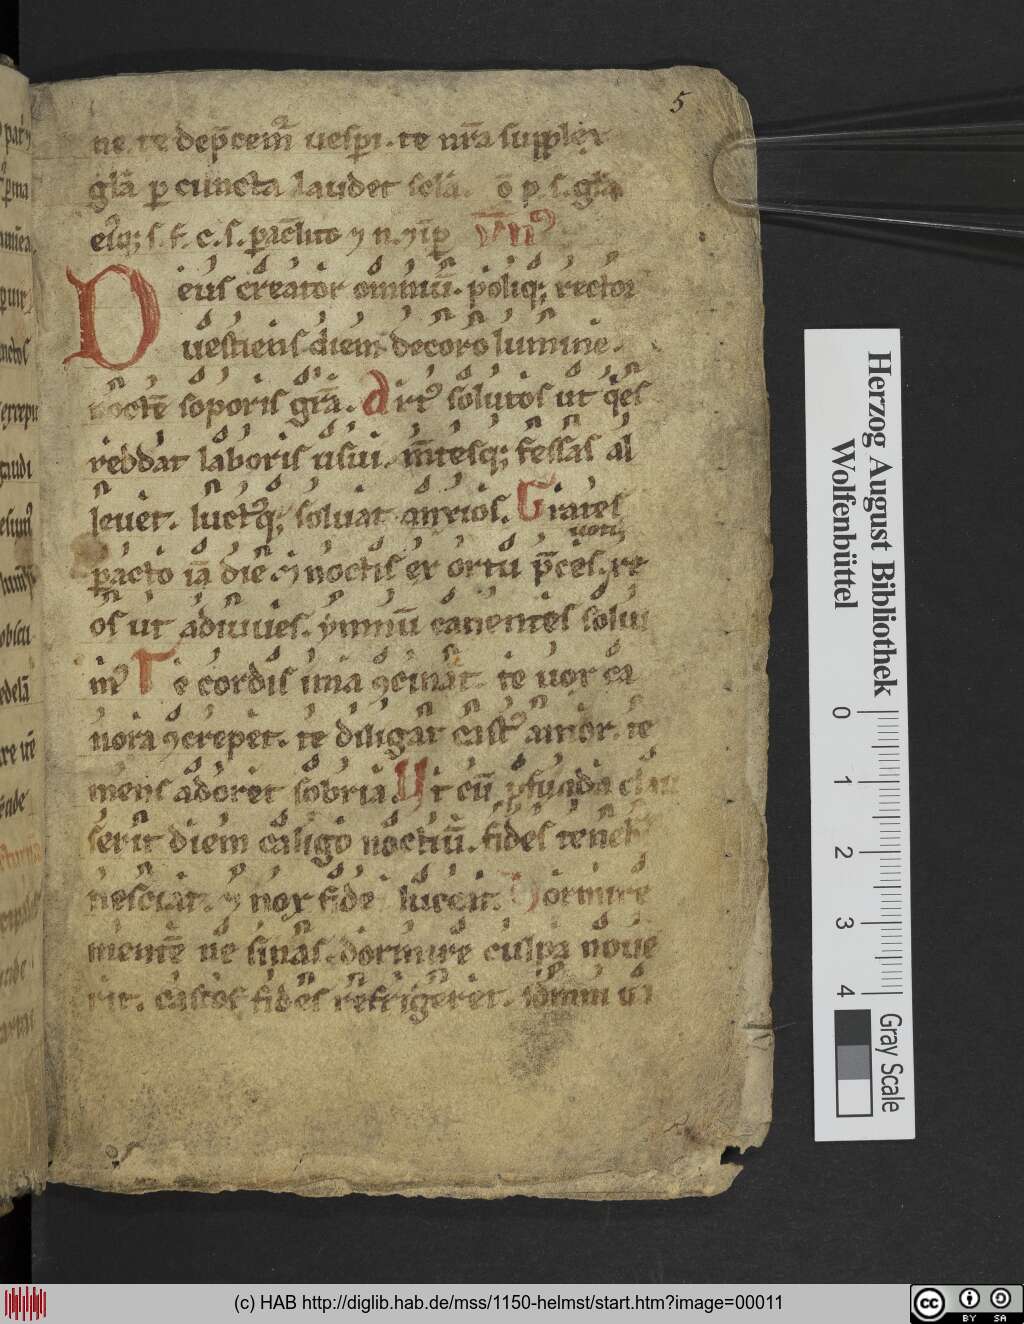 5
ne. te dep̄cem᷑ uesꝑi. te nr̄a supplex
gl̄a ꝑ cuncta laudet scl̄a. ō p. s. gl̄a
eiꝰq; s. f. c. s. paclito ⁊ n. ⁊ iꝑ
Deus creator omniū. poliq; rector
uestiens diem decoro lumine.
noctē soporis gr̄a. Artꝰ solutos ut q̇es
reddat laboris usui. m̄tesq; fessas al
leuet. luctꝰq; soluat anxios. Grates
uoti
ꝑacto iā die. ⁊ noctis ex ortu p̄ces. re
os ut adiuues. ymnū canentes solui
mꝰ Te cordis ima ꝯcināt. te uox ca
nora ꝯcrepet. te diligat castꝰ amor. te
mens adoret sobria. Ut cū ꝓfunda clau
serit diem caligo noctiū. fides teneb
nesciat. ⁊ nox fide luceat. Dormire
mentē ne sinas. dormire culpa noue
rit. castos fides refrigeret. somni ua
Herzog August Bibliothek
Wolfenbüttel
0 1 2 3 4
Gray Scale
(c) HAB http://diglib.hab.de/mss/1150-helmst/start.htm?image=00011
cc BY SA